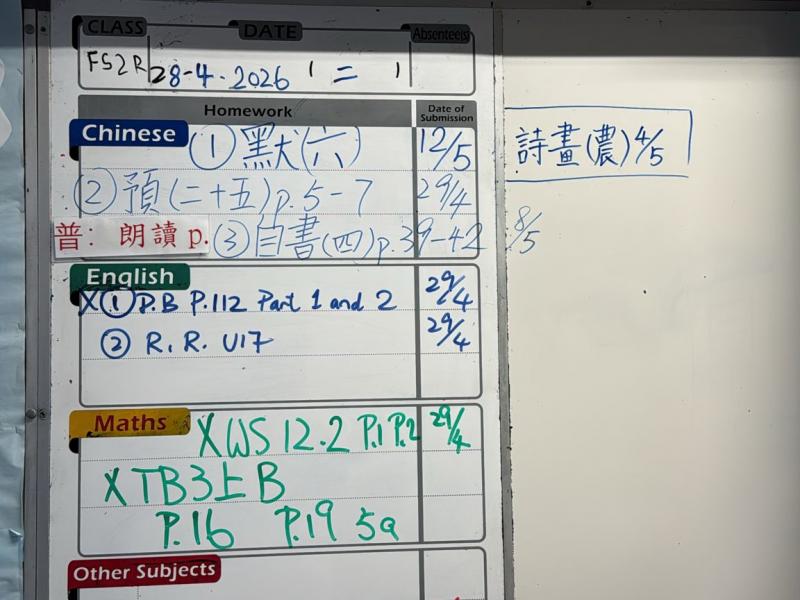 CLASS DATE Absentee(s)
FS2R 28-4-2026 ( 二 )
Homework Date of Submission
Chinese ① 默(六) 12/5
詩畫(農) 4/5
② 預(二十五) p.5-7 29/4
普: 朗讀 p. ③ 自書(四) p.39-42 8/5
English
X ① P.B P.112 Part 1 and 2 29/4
② R.R. U17 29/4
Maths X WS 12.2 P.1 P.2 29/4
X TB3上B
P.16 P.19 5a
Other Subjects